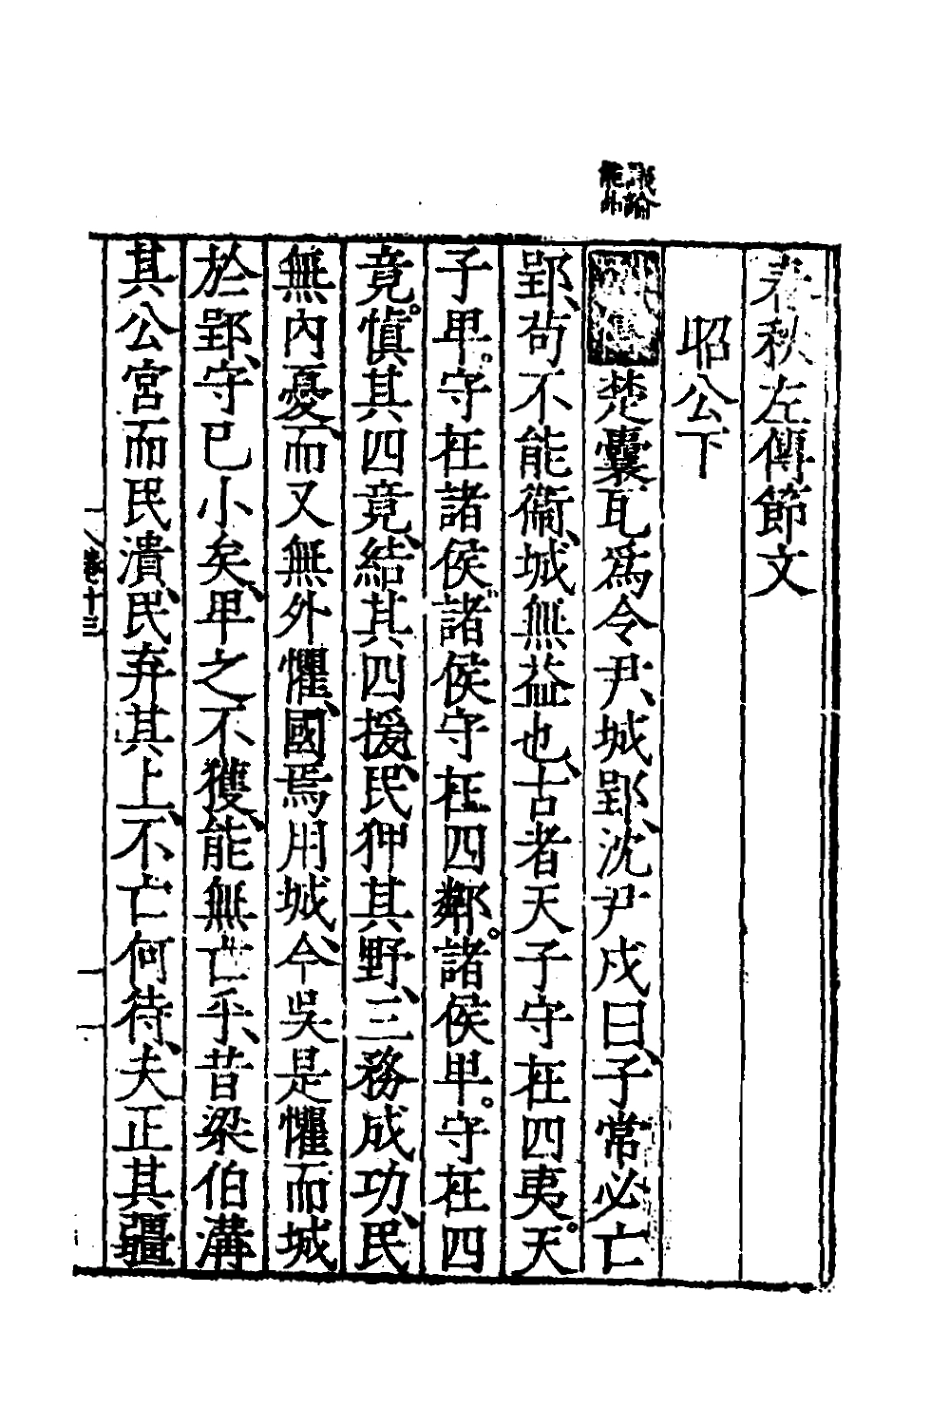 春秋左傳節文
昭公下
議論
能品
楚囊瓦爲令尹、城郢、沈尹戍曰、子常必亡
郢、苟不能衞、城無益也、古者天子守在四夷。天
子卑。守在諸侯。諸侯守在四鄰。諸侯卑。守在四
竟。愼其四竟、結其四援、民狎其野、三務成功、民
無內憂、而又無外懼、國焉用城、今吳是懼而城
於郢、守已小矣、卑之不獲、能無亡乎、昔梁伯溝
其公宮而民潰、民弃其上、不亡何待、夫正其疆
卷十三
一